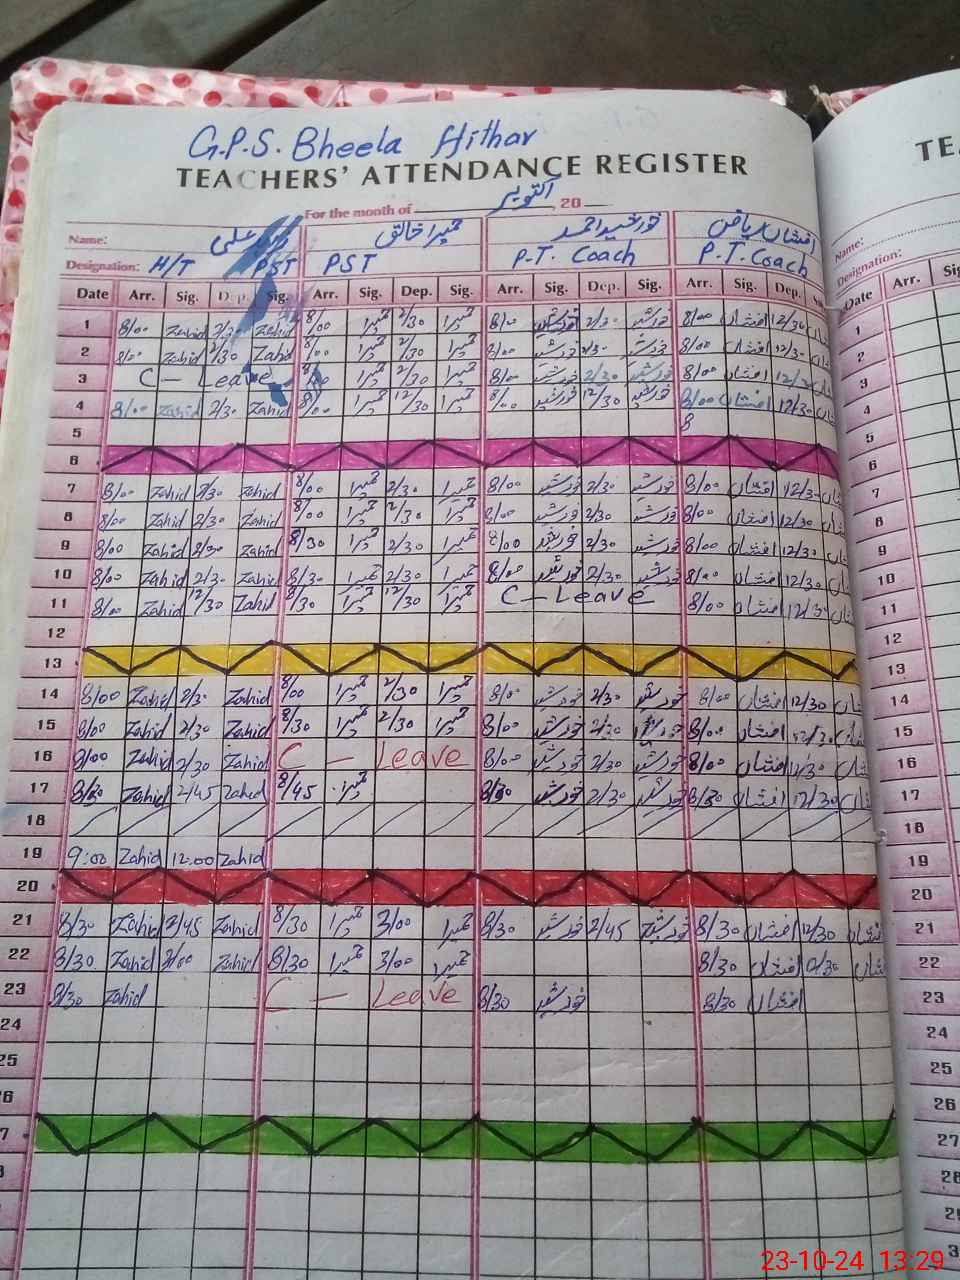 G.P.S. Bheela Hithar
TEACHERS' ATTENDANCE REGISTER
For the month of اکتوبر, 20
Name: علی حمیرا خالق خورشید احمد افشاں ریاض
Designation: H/T PST PST P.T. Coach P.T. Coach
Date Arr. Sig. Dep. Sig. Arr. Sig. Dep. Sig. Arr. Sig. Dep. Sig. Arr. Sig. Dep.
1 8/00 Zahid 2/30 Zahid 8/00 حمیرا 2/30 حمیرا 8/00 خورشید 2/30 خورشید 8/00 افشاں 12/30
2 8/00 Zahid 2/30 Zahid 8/00 حمیرا 2/30 حمیرا 8/00 خورشید 2/30 خورشید 8/00 افشاں 12/30
3 C - Leave حمیرا 2/30 حمیرا 8/00 خورشید 2/30 خورشید 8/00 افشاں 12/30
4 8/00 Zahid 2/30 Zahid 8/00 حمیرا 12/30 حمیرا 8/00 خورشید 12/30 خورشید 8/00 افشاں 12/30
5 8
6
7 8/00 Zahid 2/30 Zahid 8/00 حمیرا 2/30 حمیرا 8/00 خورشید 2/30 خورشید 8/00 افشاں 12/30
8 8/00 Zahid 2/30 Zahid 8/00 حمیرا 2/30 حمیرا 8/00 خورشید 2/30 خورشید 8/00 افشاں 12/30
9 8/00 Zahid 2/30 Zahid 8/30 حمیرا 2/30 حمیرا 8/00 خورشید 2/30 خورشید 8/00 افشاں 12/30
10 8/00 Zahid 2/30 Zahid 8/30 حمیرا 2/30 حمیرا 8/00 خورشید 2/30 خورشید 8/00 افشاں 12/30
11 8/00 Zahid 12/30 Zahid 8/30 حمیرا 12/30 حمیرا C - Leave 8/00 افشاں 12/30
12
13
14 8/00 Zahid 2/30 Zahid 8/00 حمیرا 2/30 حمیرا 8/00 خورشید 2/30 خورشید 8/00 افشاں 12/30
15 8/00 Zahid 2/30 Zahid 8/30 حمیرا 2/30 حمیرا 8/00 خورشید 2/30 خورشید 8/00 افشاں 12/30
16 8/00 Zahid 2/30 Zahid C - Leave 8/00 خورشید 2/30 خورشید 8/00 افشاں 12/30
17 8/30 Zahid 2/45 Zahid 8/45 حمیرا 8/30 خورشید 2/30 خورشید 8/30 افشاں 12/30
18
19 9:00 Zahid 12:00 Zahid
20
21 8/30 Zahid 2/45 Zahid 8/30 حمیرا 3/00 حمیرا 8/30 خورشید 2/45 خورشید 8/30 افشاں 12/30
22 8/30 Zahid 3/00 Zahid 8/30 حمیرا 3/00 حمیرا 8/30 افشاں 12/30
23 8/30 Zahid C - Leave 8/30 خورشید 8/30 افشاں
24
25
26
27
TEA
Name:
Designation:
Date Arr. Sig.
1
2
3
4
5
6
7
8
9
10
11
12
13
14
15
16
17
18
19
20
21
22
23
24
25
26
27
28
23-10-24 13:29